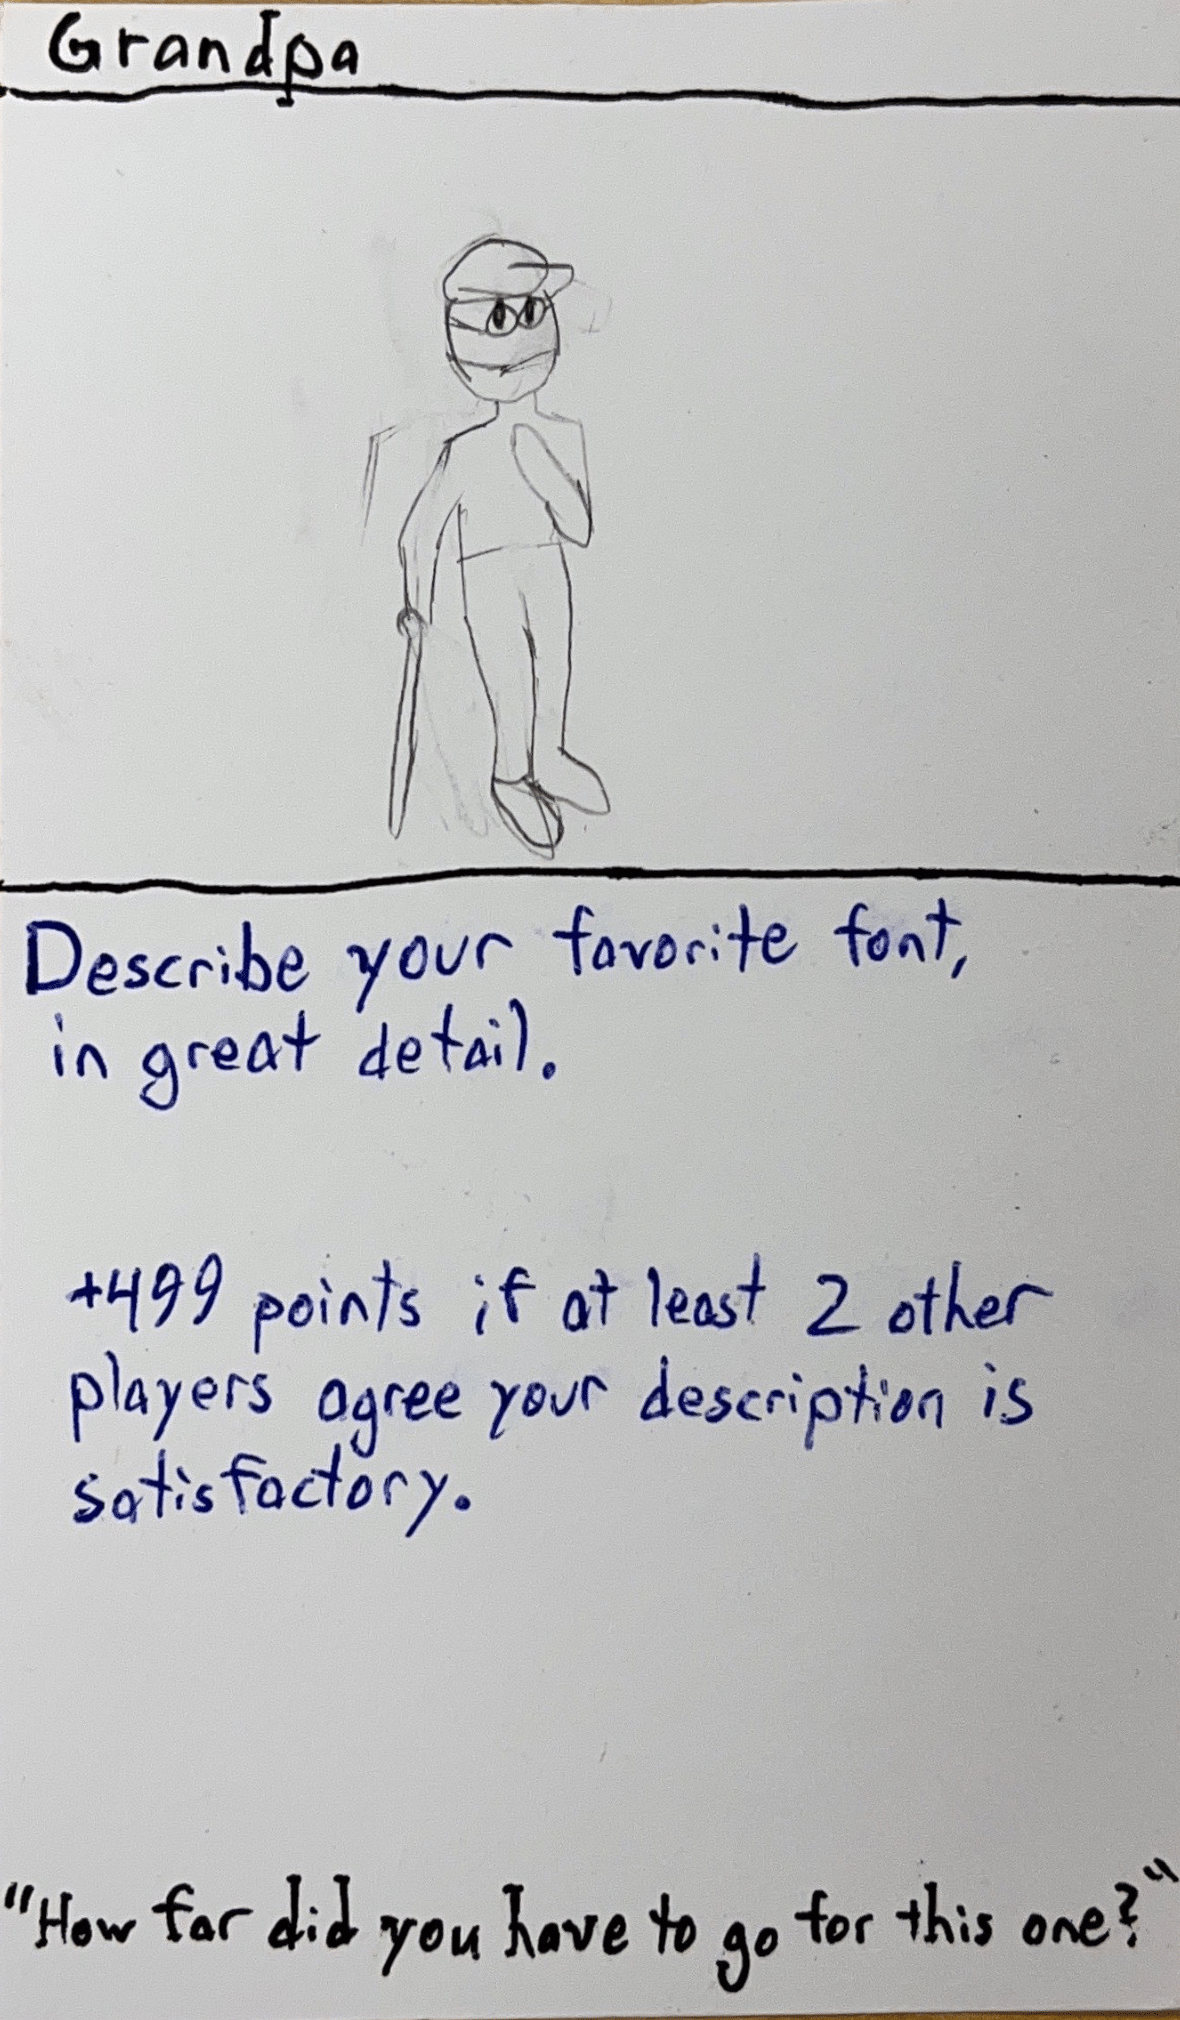 Grandpa
Describe your favorite font,
in great detail.
+499 points if at least 2 other
players agree your description is
satisfactory.
"How far did you have to go for this one?"